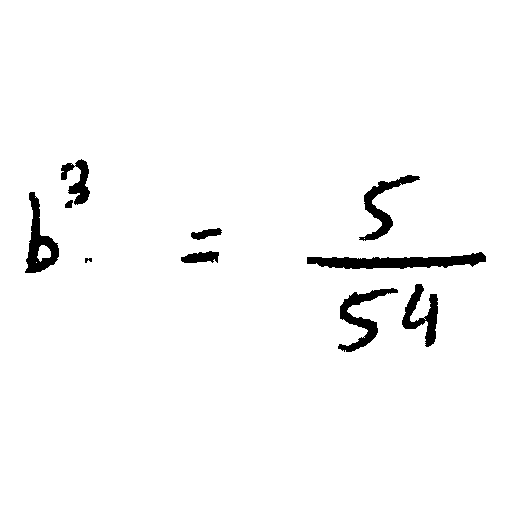 b³. = 5/54